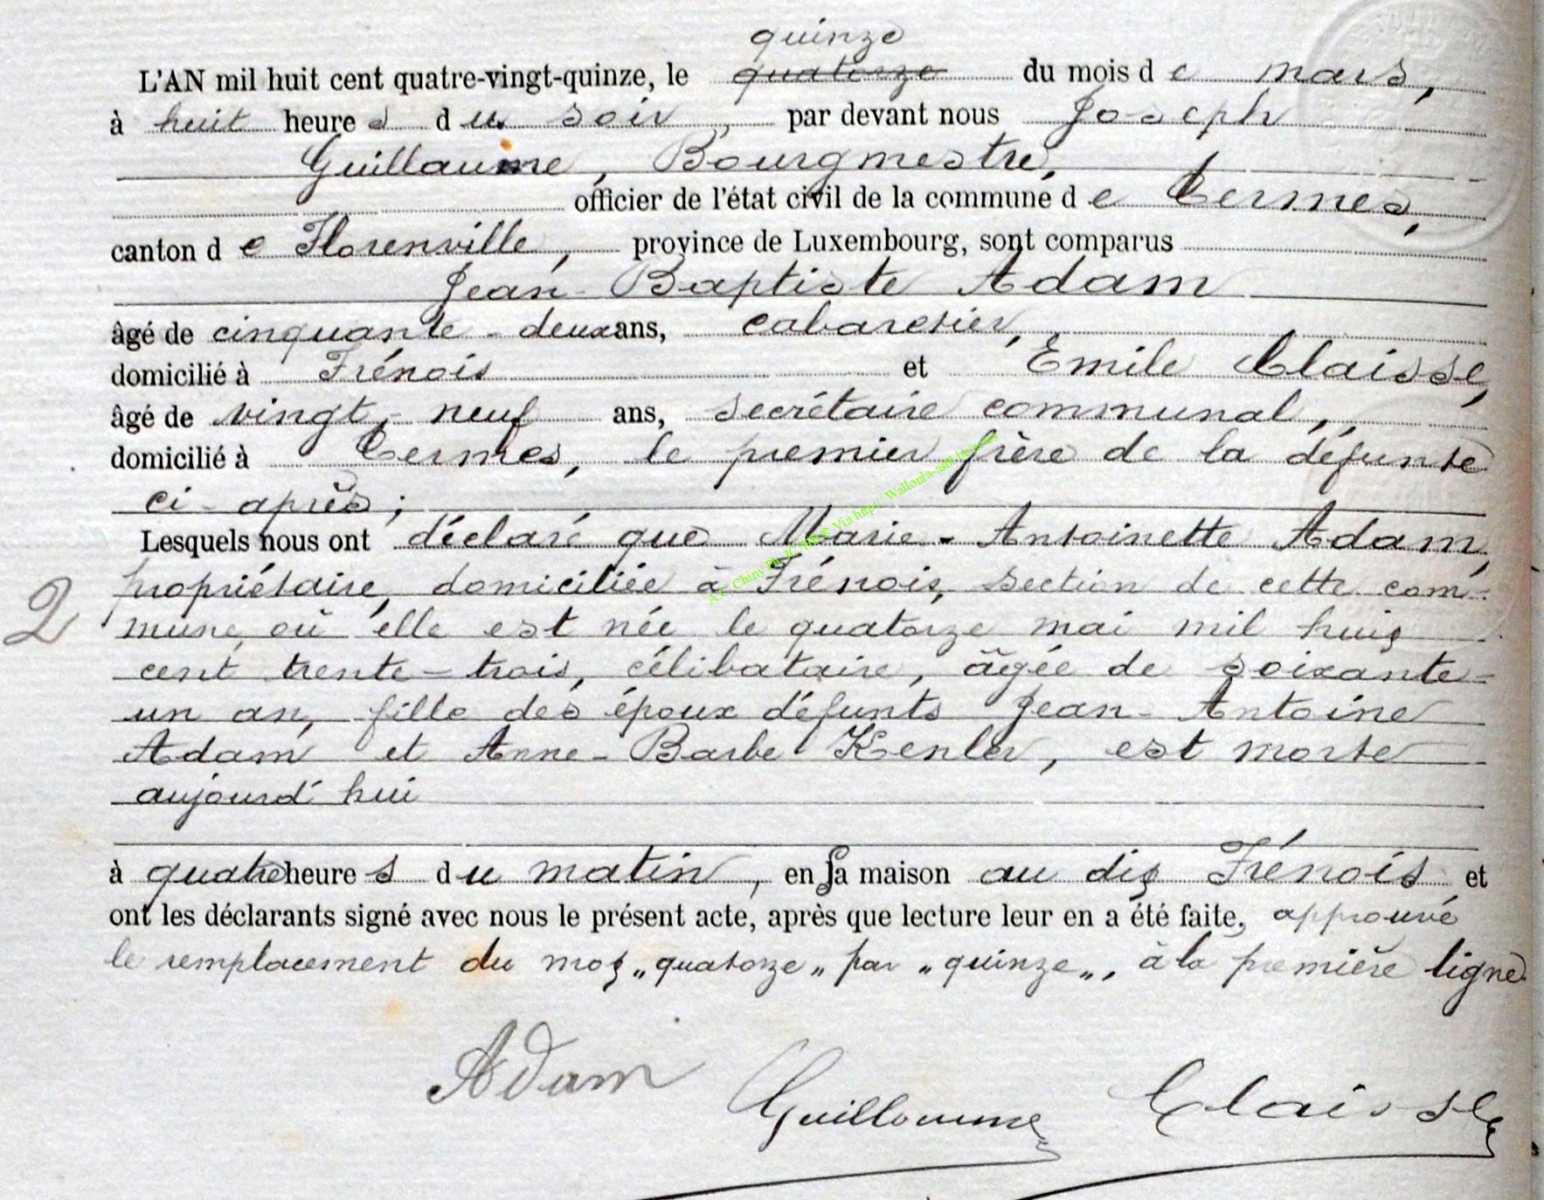 quinze
L'AN mil huit cent quatre-vingt-quinze, le quatorze du mois de mars,
à huit heures du soir, par devant nous Joseph
Guillaume, Bourgmestre,
officier de l'état civil de la commune de Termes,
canton de Florenville, province de Luxembourg, sont comparus
Jean-Baptiste Adam
âgé de cinquante-deux ans, cabaretier,
domicilié à Frénois et Emile Claisse,
âgé de vingt-neuf ans, secrétaire communal,
domicilié à Termes, le premier frère de la défunte
ci-après;
Lesquels nous ont déclaré que Marie-Antoinette Adam,
propriétaire, domiciliée à Frénois, section de cette com-
mune, où elle est née le quatorze mai mil huit
cent trente-trois, célibataire, âgée de soixante-
un an, fille des époux défunts Jean-Antoine
Adam et Anne-Barbe Kenler, est morte
aujourd'hui
2
à quatre heures du matin, en sa maison au dit Frénois et
ont les déclarants signé avec nous le présent acte, après que lecture leur en a été faite, approuvé
le remplacement du mot „quatorze„ par „quinze„, à la première ligne.
Adam Guillaume Claisse